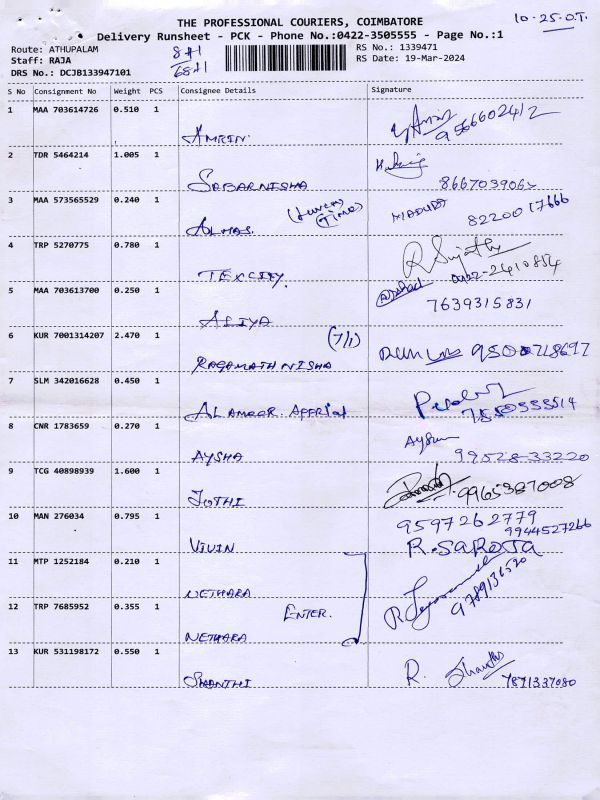 THE PROFESSIONAL COURIERS, COIMBATORE 10-25.O.T.
Delivery Runsheet - PCK - Phone No.:0422-3505555 - Page No.:1
Route: ATHUPALAM 8+1 RS No.: 1339471
Staff: RAJA 68+1 RS Date: 19-Mar-2024
DRS No.: DCJB133947101
S No Consignment No Weight PCS Consignee Details Signature
1 MAA 703614726 0.510 1
AMRIN. 9566602412
2 TDR 5464214 1.005 1
SABARNISHA 866703906
3 MAA 573565529 0.240 1
ALMAS. (Lunch Time) 8220017666
4 TRP 5270775 0.780 1 R Sujatha
TEXCITY. 0422-2410854
5 MAA 703613700 0.250 1 7639315831
ALIYA
6 KUR 7001314207 2.470 1 (7/1) 9500718697
RAGAMATH NISHA
7 SLM 342016628 0.450 1
AL AMEER 7550555514
8 CNR 1783659 0.270 1
AYSHA 99528-33220
9 TCG 40898939 1.600 1 9965387008
JOTHI
10 MAN 276034 0.795 1 9597262779
9944527266
VIVIN R.SAROJA
11 MTP 1252184 0.210 1
NETHARA 9789136520
12 TRP 7685952 0.355 1 ENTER.
NETHARA
13 KUR 531198172 0.550 1 R. Shanthi
SHANTHI 7871337080